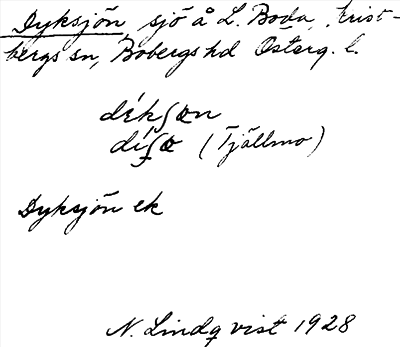 Dyksjön, sjö å L. Boda, Krist-
bergs sn, Bobergs hd Österg. l.
dékʃœn
díʃœ (Tjällmo)
Dyksjön ek
N. Lindqvist 1928